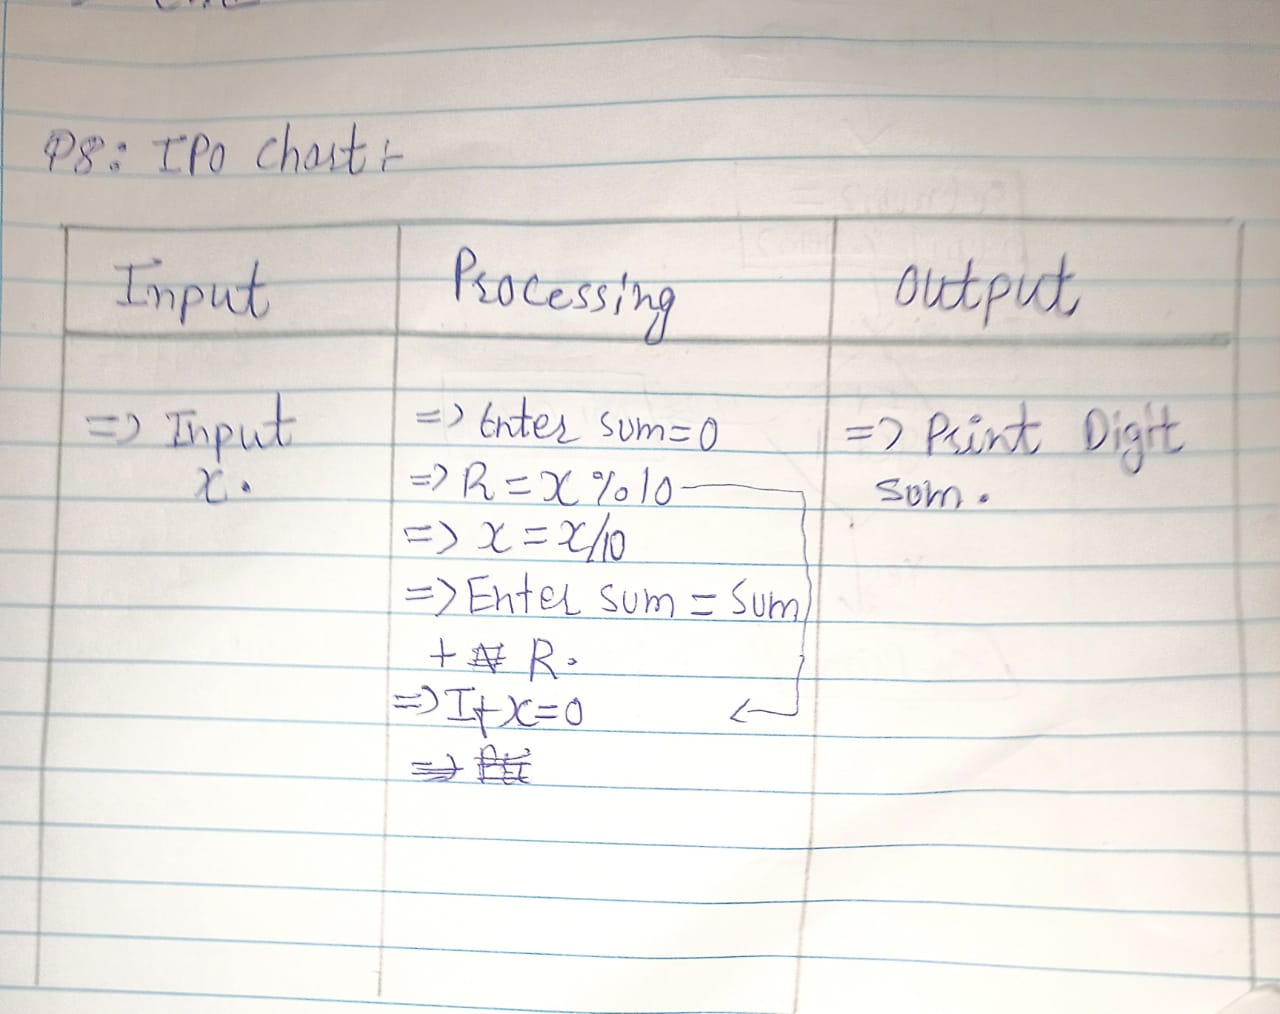 P8: IPO Chart :-
Input Processing output
=> Input
x.
=> Enter sum=0
=> R = x % 10
=> x = x/10
=> Enter sum = Sum
+ R.
=> If x=0
=> Print Digit
sum.